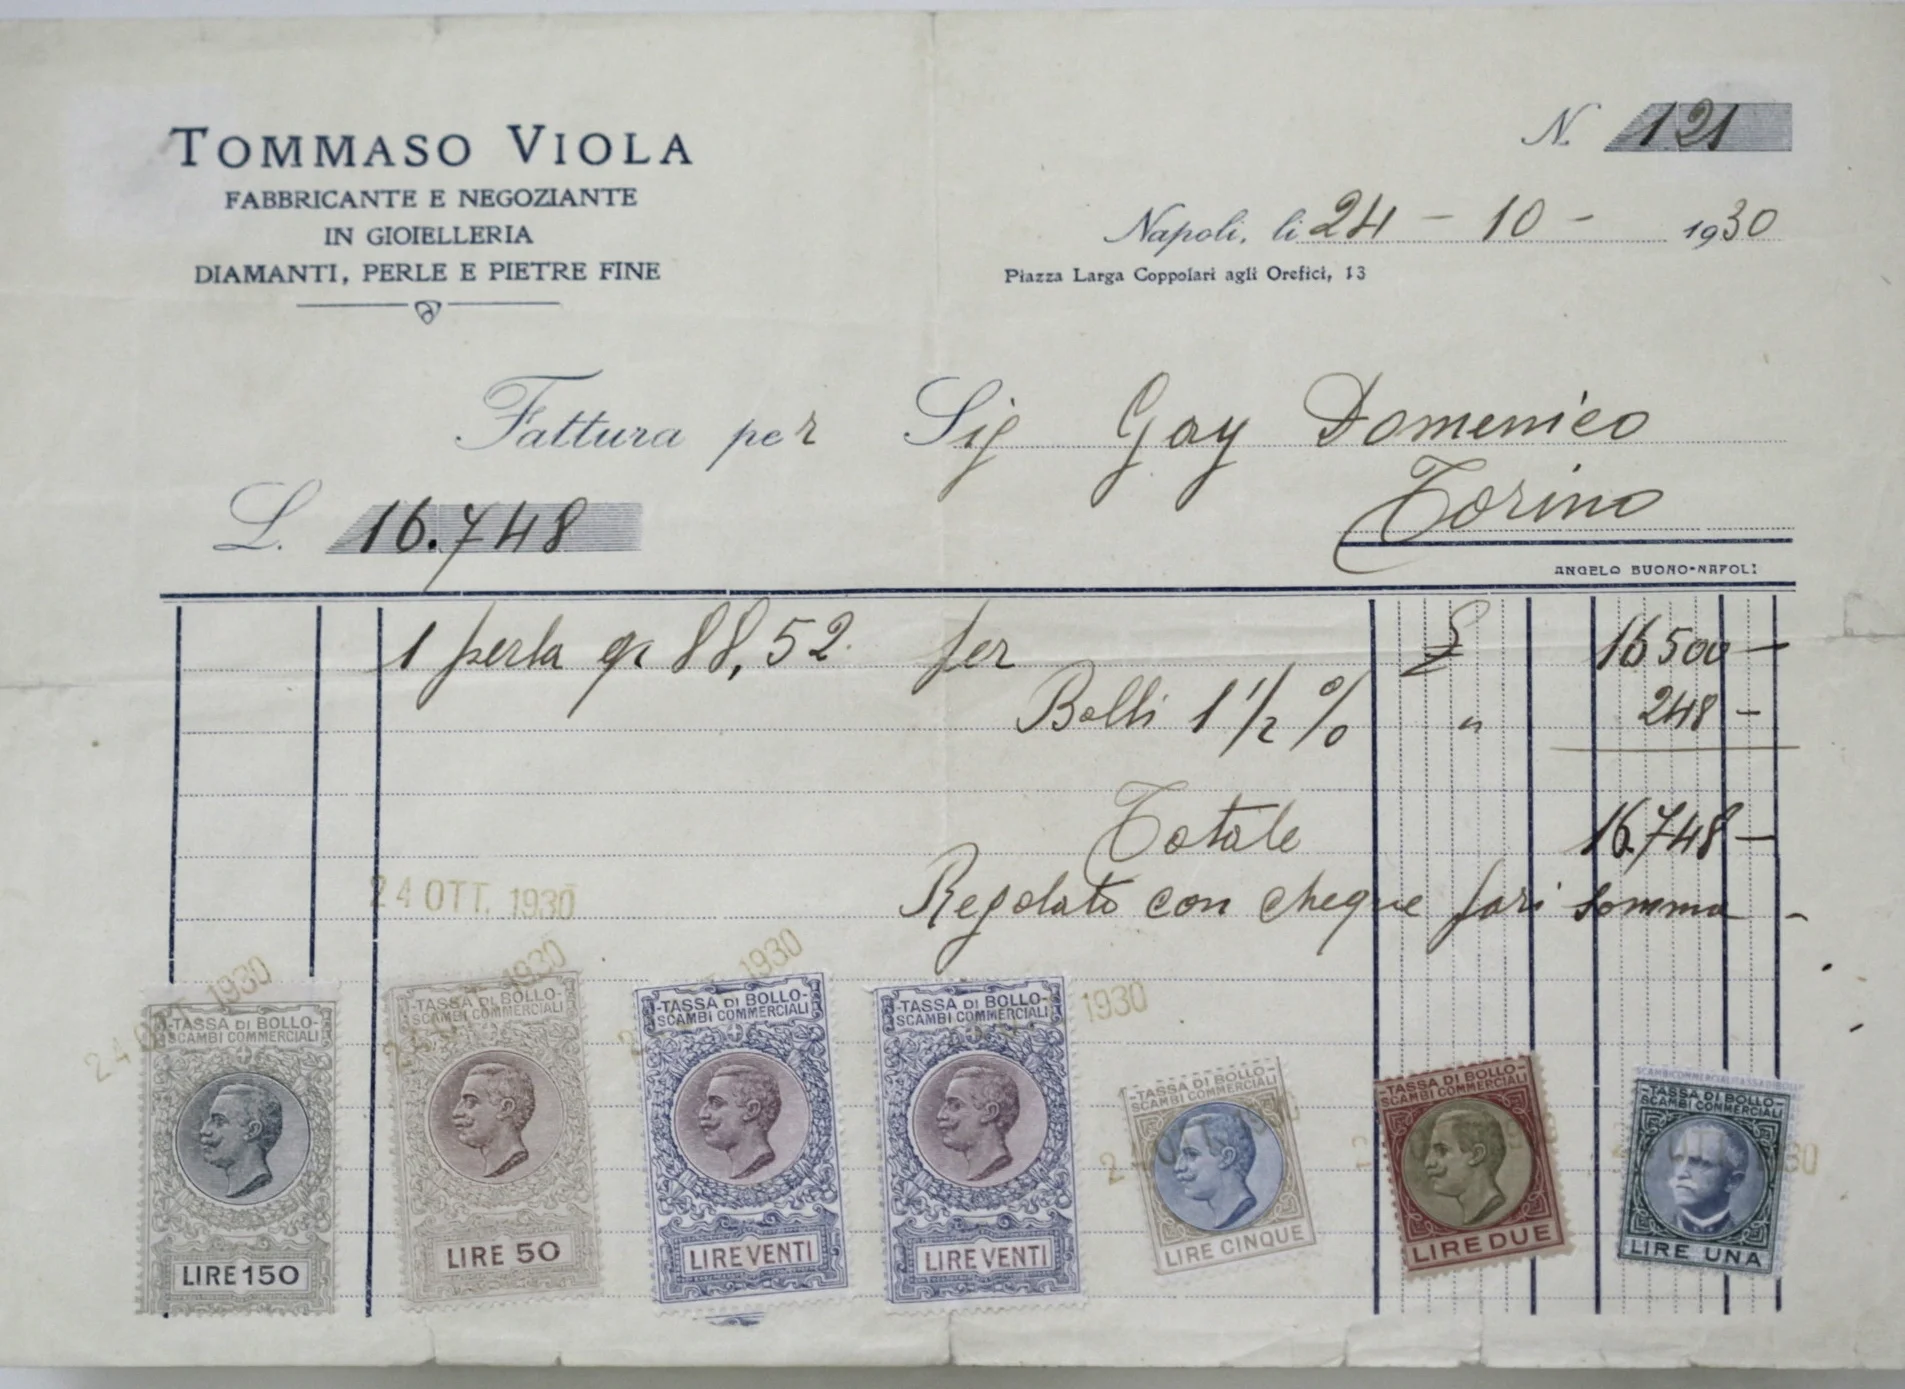 TOMMASO VIOLA
FABBRICANTE E NEGOZIANTE
IN GIOIELLERIA
DIAMANTI, PERLE E PIETRE FINE
N. 121
Napoli, li 24 - 10 - 1930
Piazza Larga Coppolari agli Orefici, 13
Fattura per Sig Gay Domenico
Torino
L. 16.748
ANGELO BUONO-NAPOLI
1 perla gr 88,52. per £ 16500 —
Bolli 1 1/2 % " 248 —
Totale 16.748 —
Regolato con cheque pari somma -
24 OTT. 1930
24 OTT. 1930
1930
1930
1930
-TASSA DI BOLLO-
SCAMBI COMMERCIALI
LIRE 150
-TASSA DI BOLLO-
SCAMBI COMMERCIALI
LIRE 50
-TASSA DI BOLLO-
SCAMBI COMMERCIALI
LIRE VENTI
-TASSA DI BOLLO-
SCAMBI COMMERCIALI
LIRE VENTI
-TASSA DI BOLLO-
SCAMBI COMMERCIALI
LIRE CINQUE
-TASSA DI BOLLO-
SCAMBI COMMERCIALI
LIRE DUE
-TASSA DI BOLLO-
SCAMBI COMMERCIALI
LIRE UNA